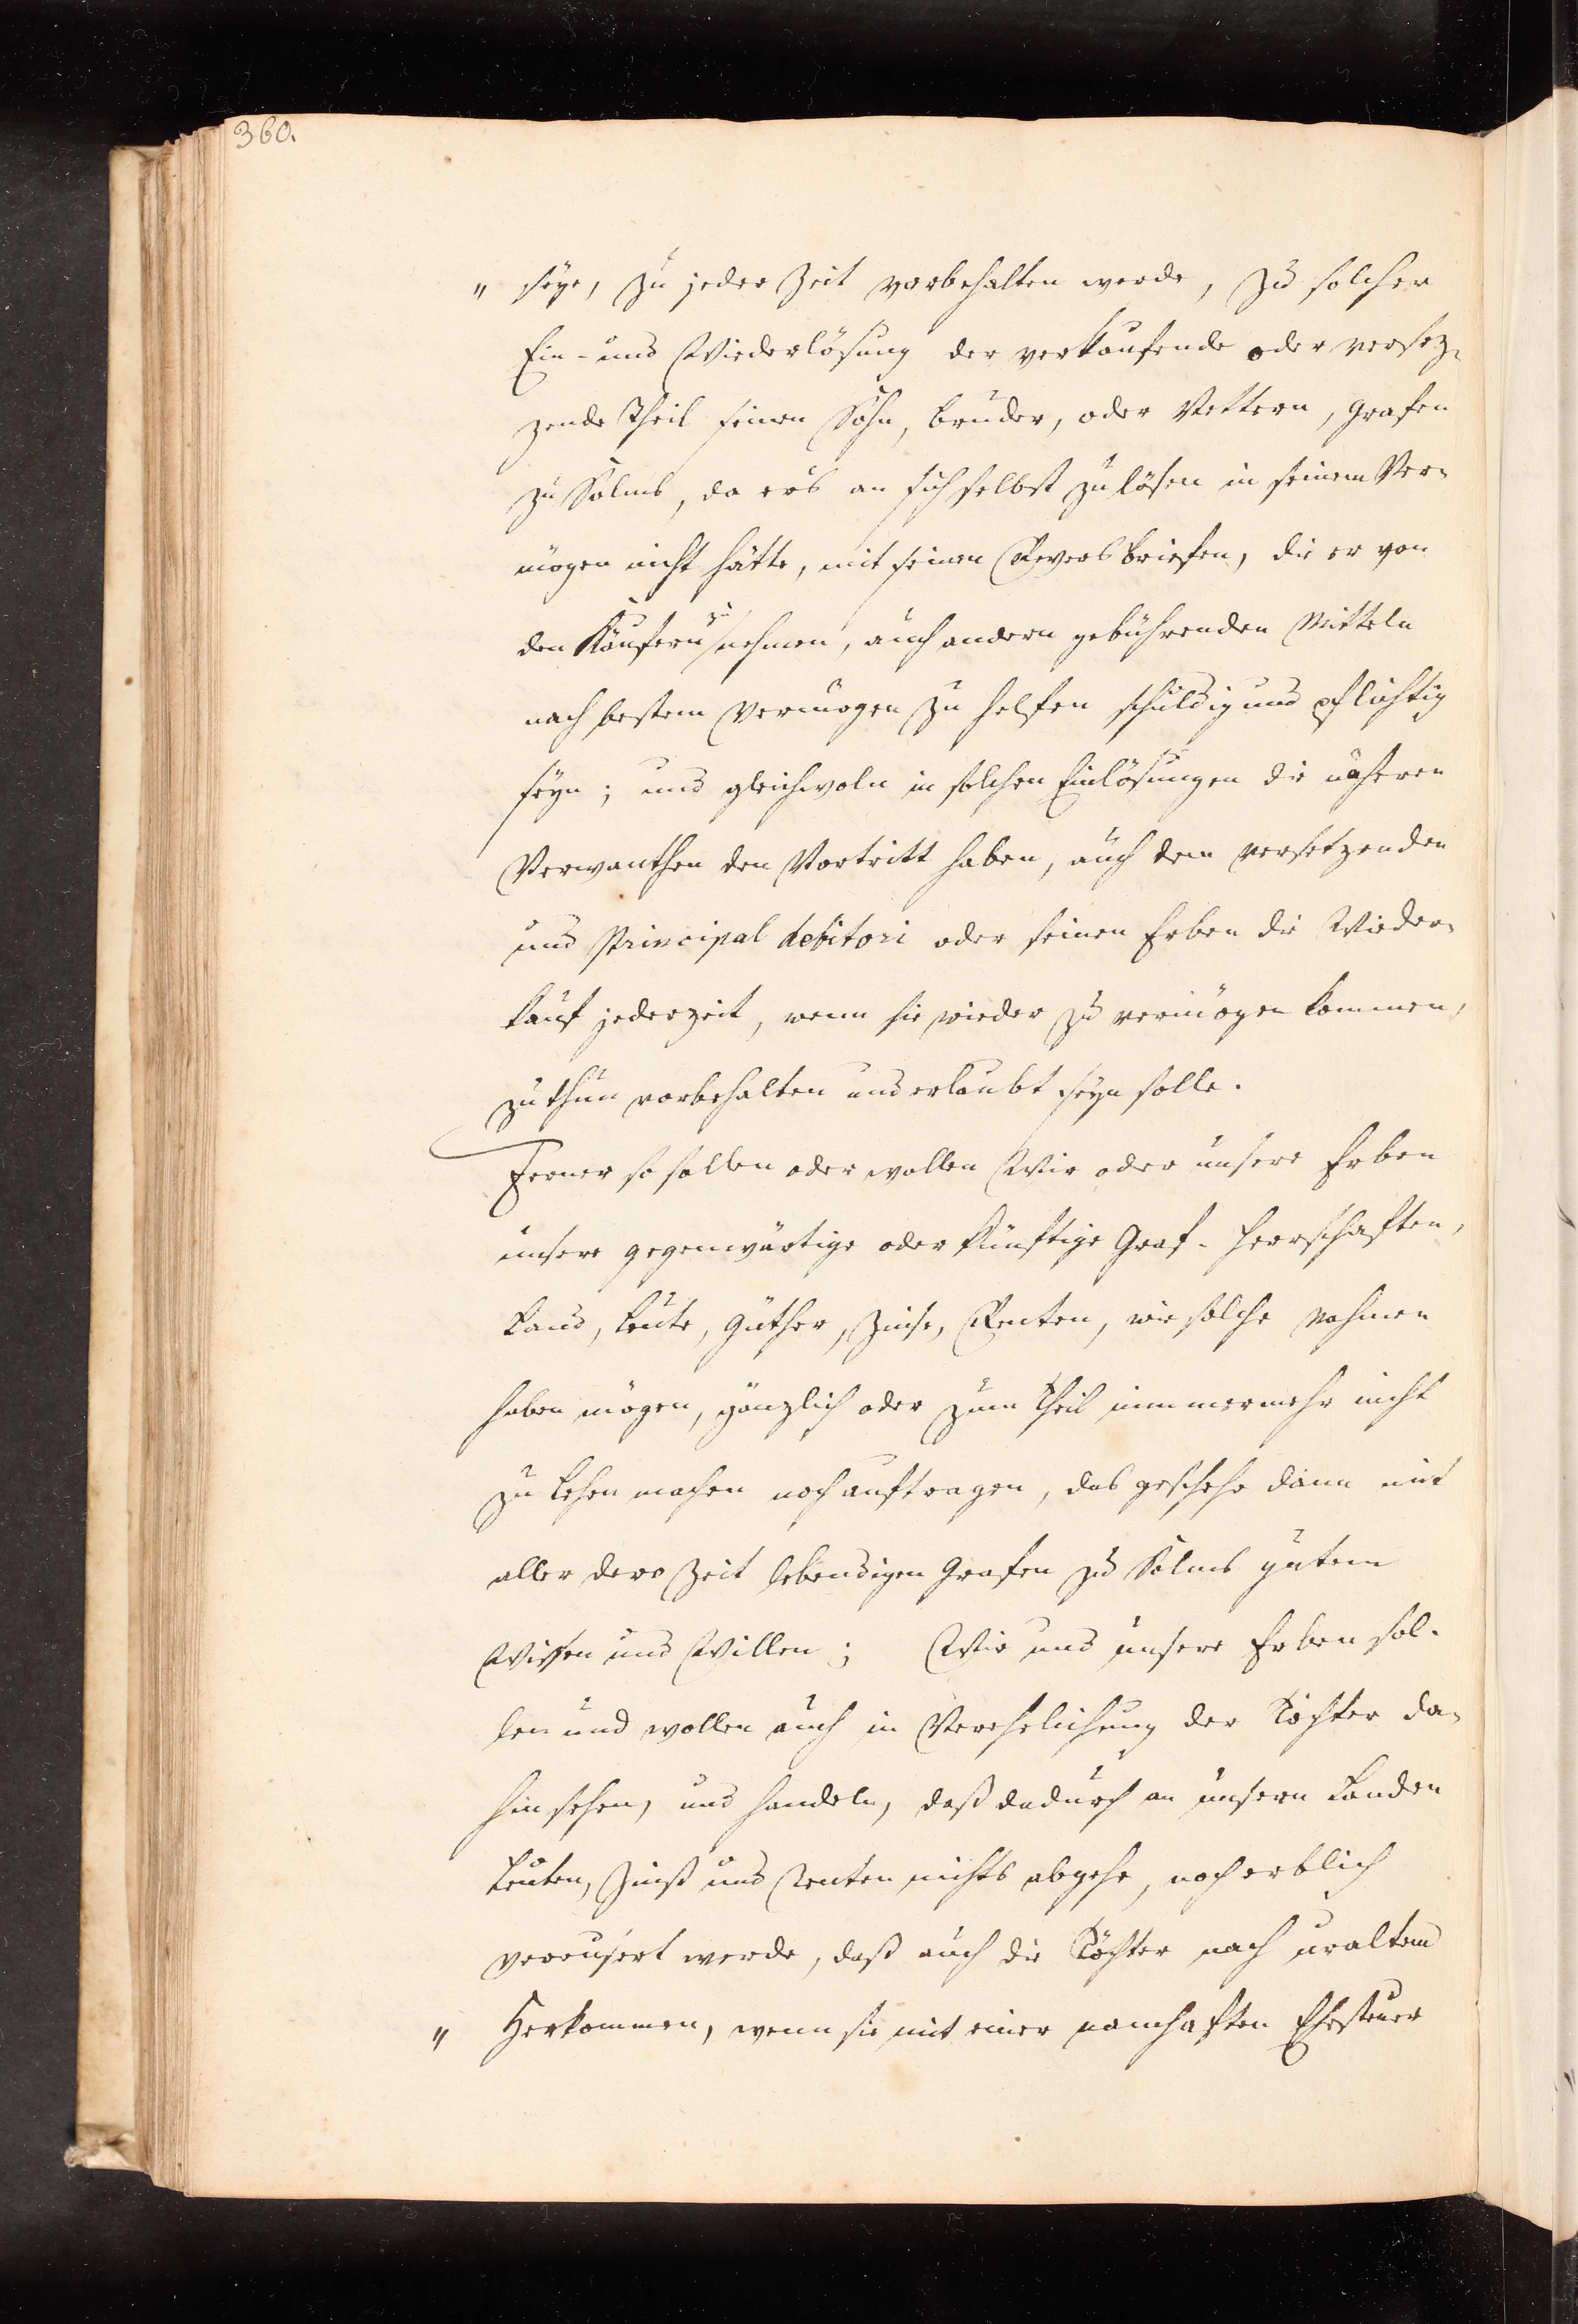 360.
" seye, zu jeder Zeit vorbehalten werde, zu solcher
Ein- und Wiederlösung der verkaufende oder versez-
zende Theil seinen Sohn, Bruder, oder Vettern, Grafen
zu Solms, da er's an sich selbst zu lösen in seinem Ver-
mögen nicht hätte, mit seinen Reversbriefen, die er von
den Käufern zu nehmen, auch andern gebührenden Mitteln
nach bestem Vermögen zu helfen schuldig und pflichtig
seyn; und gleichwoln in solchen Einlösungen die näheren
Verwanthen den Vortritt haben, auch dem versetzenden
und Principal debitori oder seinen Erben die Wieder-
kauf jederzeit, wenn sie wieder zu vermögen kommen,
zu thun vorbehalten und erlaubt seyn solle.
Ferner so sollen oder wollen Wir oder unsere Erben
unsere gegenwärtige oder künftige Graf- Herrschaften,
Land, Leute, Güther, Zinse, Renten, wie solche nahmen
haben mögen, gänzlich oder zum Theil immermehr nicht
zu Lehen machen noch auftragen, das geschehe dann mit
aller dero Zeit lebendigen Grafen zu Solms gutem
Wissen und Willen; Wir und unsere Erben sol-
len und wollen auch in Verehelichung der Töchter da-
hin sehen, und handeln, daß dadurch an unsern Landen
Leuten, Zinß und Renten nichts abgehe, noch erblich
vereusert werde, daß auch die Töchter nach uraltem
" Herkommen, wenn sie mit einer namhaften Ehesteuer